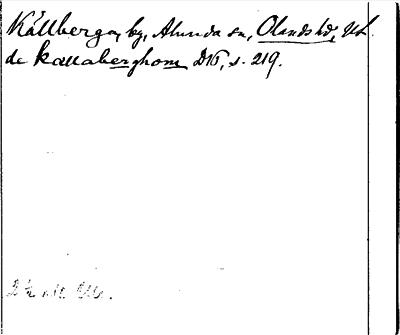 Källberga, by, Alunda sn, Olands hd, Upl.
de kallaberghom D16, s. 219.